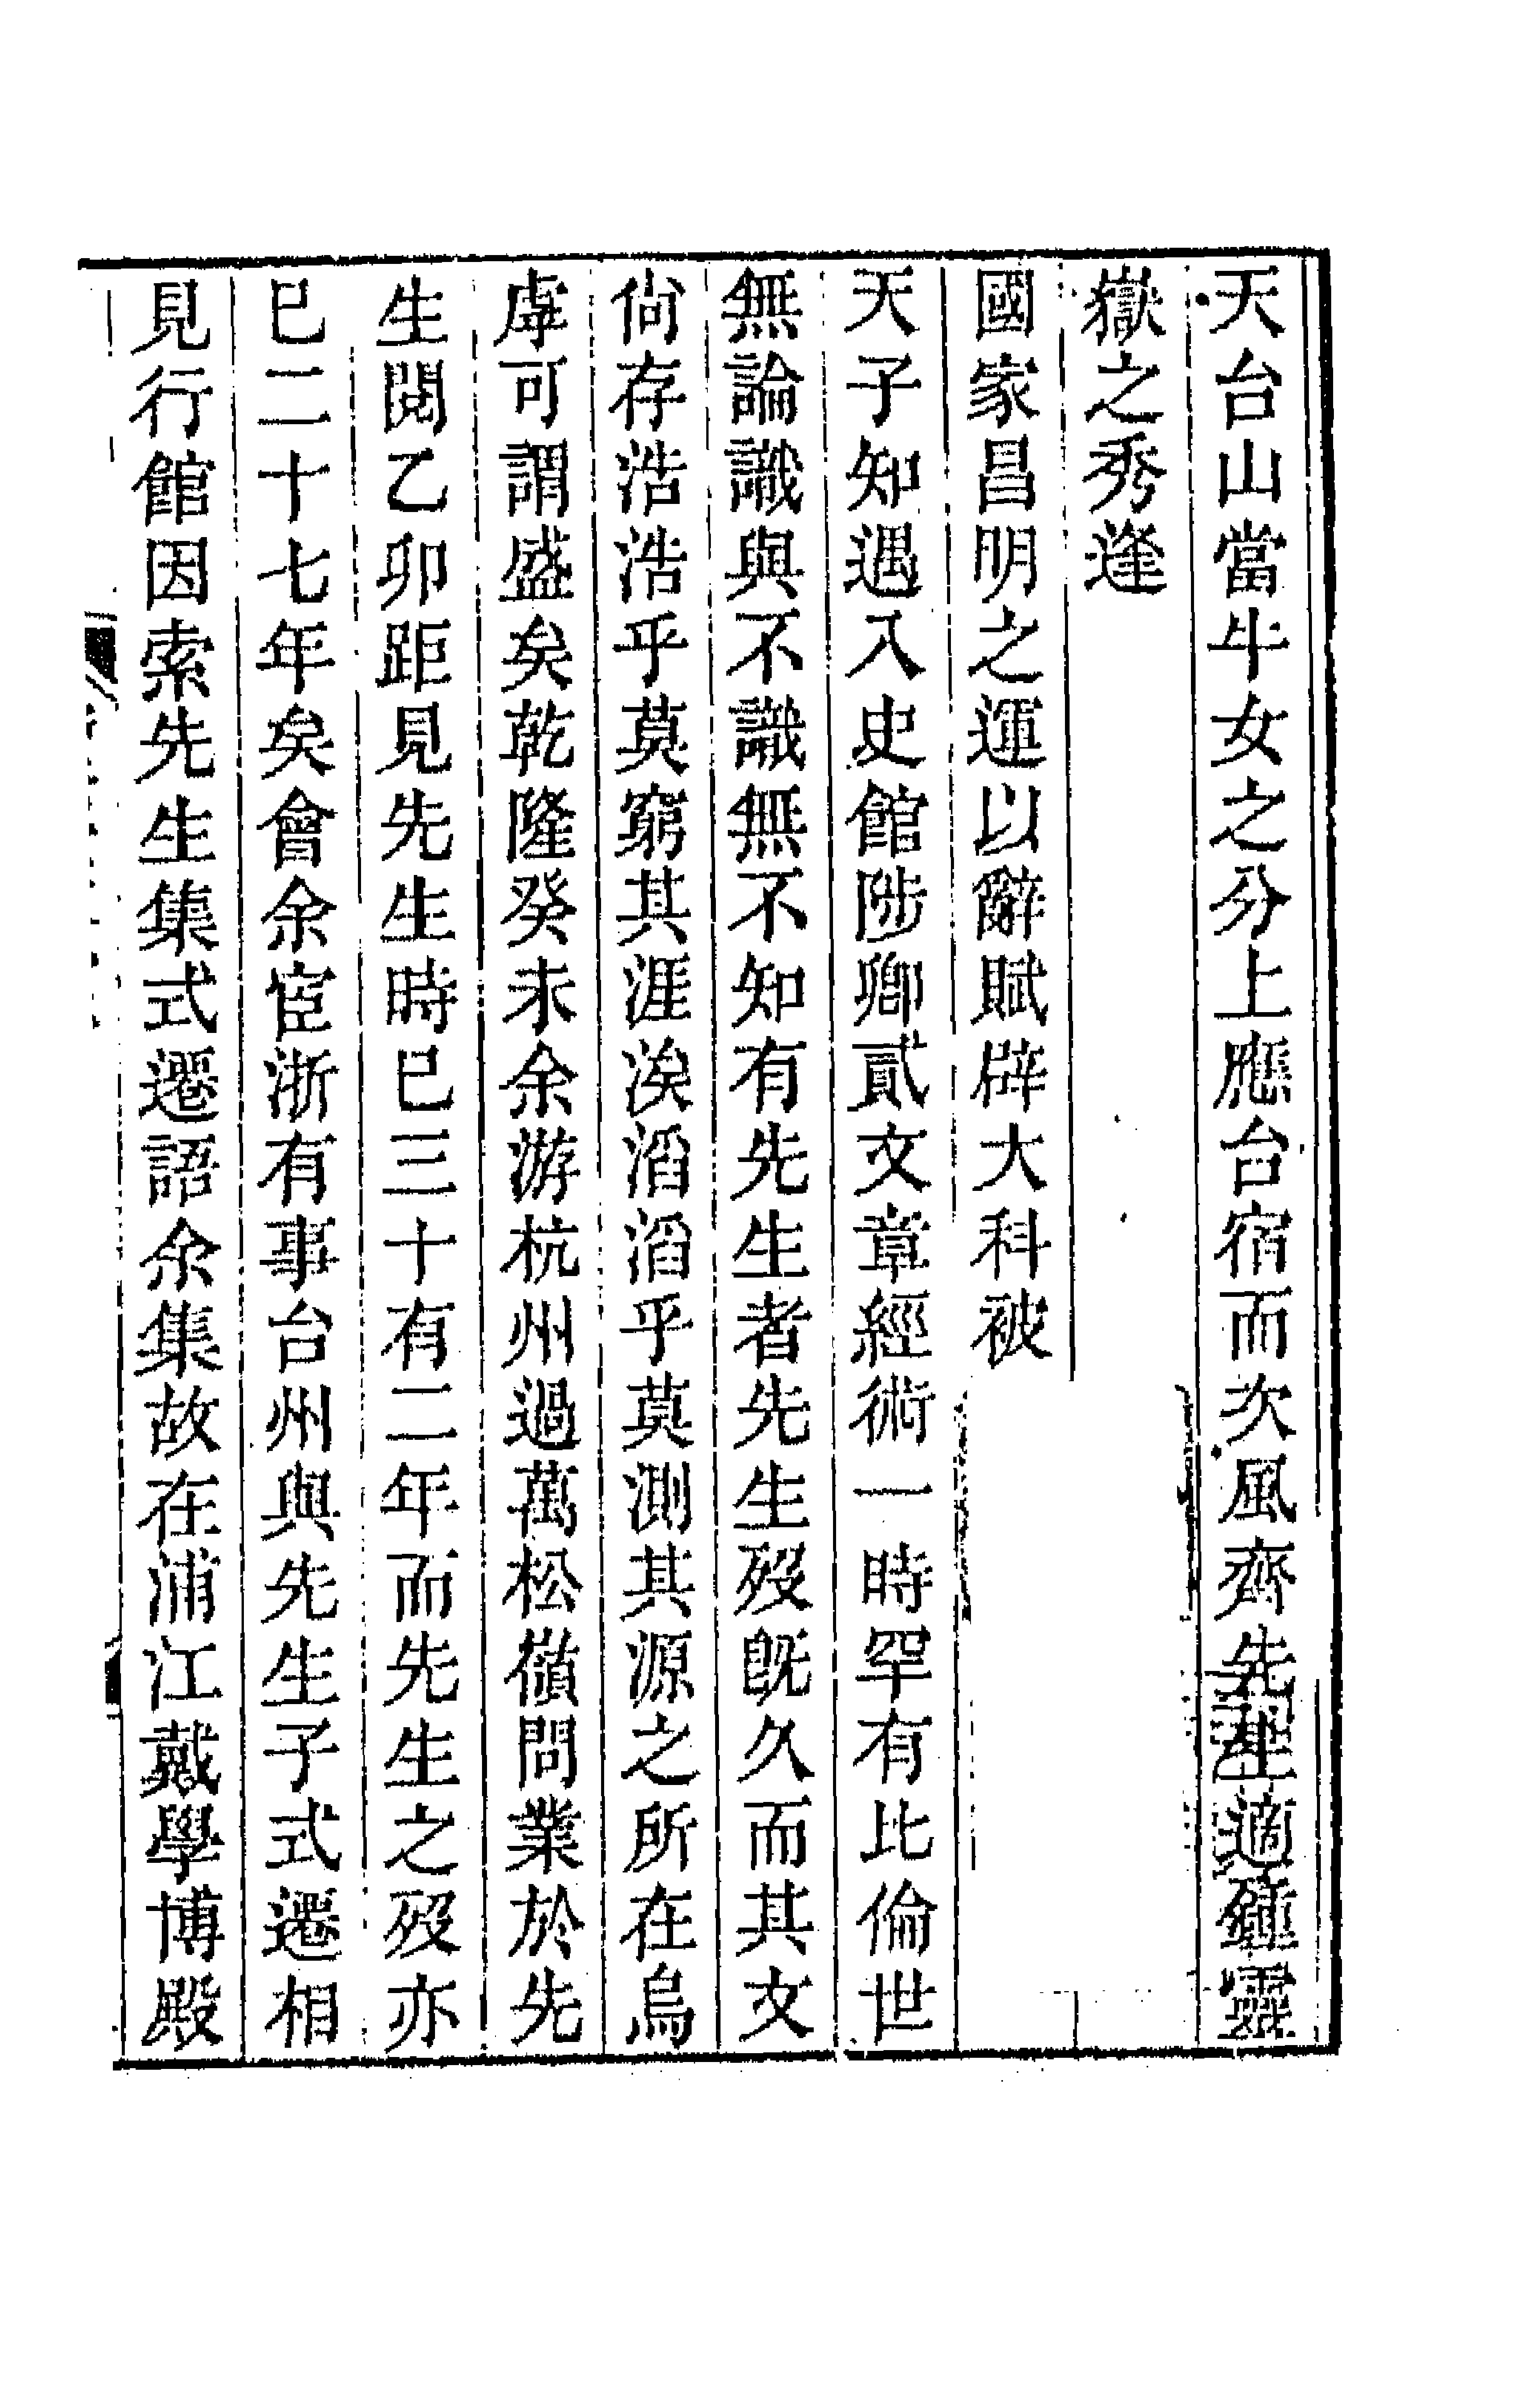 天台山當牛女之分上應台宿而次風齊先生適鍾靈
嶽之秀逢
國家昌明之運以辭賦辟大科被
天子知遇入史館陟卿貳文章經術一時罕有比倫世
無論識與不識無不知有先生者先生歿旣久而其文
尙存浩浩乎莫窮其涯涘滔滔乎莫測其源之所在烏
虖可謂盛矣乾隆癸未余游杭州過萬松嶺問業於先
生閱乙卯距見先生時已三十有二年而先生之歿亦
已二十七年矣會余宦浙有事台州與先生子式遷相
見行館因索先生集式遷語余集故在浦江戴學博殿